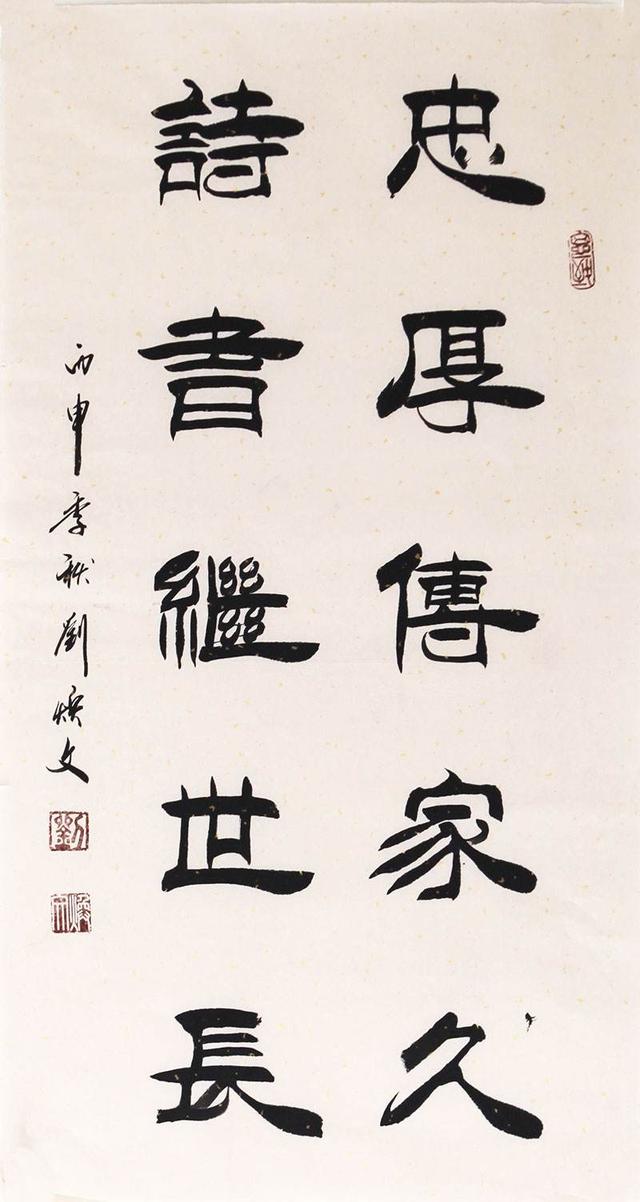 忠厚傳家久
詩書繼世長
丙申季秋劉煥文
劉